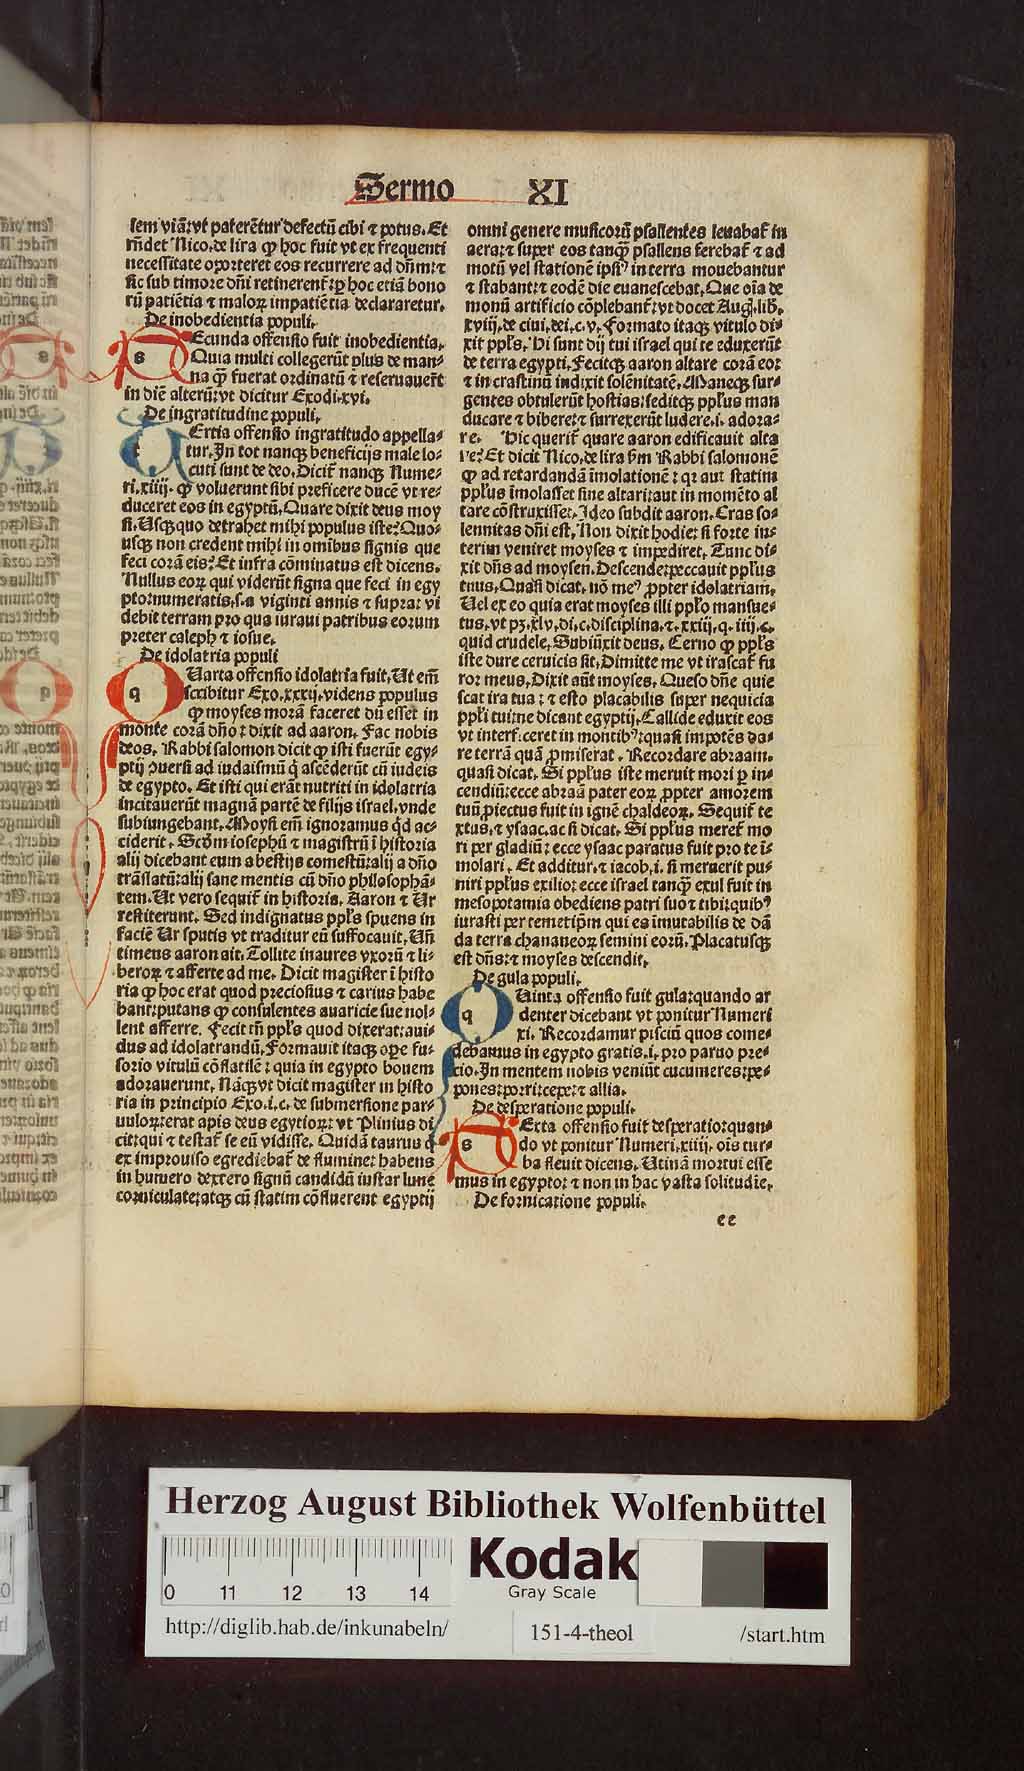 Sermo XI
sem viā: vt paterēt̉ur defectū cibi ⁊ potus. Et
rn̄det Nico. de lira ꝙ hoc fuit vt ex frequenti
necessitate oporteret eos recurrere ad dn̄m: ⁊
sic sub timore dn̄i retinerent̉: ꝑ hoc etiā bono
rū patiētia ⁊ maloꝝ impatiētia declararetur.
De inobedientia populi.
s Ecunda offensio fuit inobedientia.
Quia multi collegerūt plus de man-
na ꝙ̄ fuerat ordinatū ⁊ reseruauerūt
in diē alterū: vt dicitur Exodi. xvi.
De ingratitudine populi.
t Ertia offensio ingratitudo appella-
tur. In tot nanqꝫ beneficijs male lo-
cuti sunt de deo. Dicit̉ nanqꝫ Nume-
ri. xiiij. ꝙ voluerunt sibi preficere ducē vt re-
duceret eos in egyptū. Quare dixit deus moy
si. Usqꝫquo detrahet mihi populus iste? Quo-
usqꝫ non credent mihi in omibus signis que
feci corā eis? Et infra cōminatus est dicens.
Nullus eoꝝ qui viderūt signa que feci in egy
pto: numeratis. s. a viginti annis ⁊ supra: vi
debit terram pro qua iuraui patribus eorum
preter caleph ⁊ iosue.
De idolatria populi
q Uarta offensio idolatria fuit. Ut em̄
scribitur Exo. xxxij. videns populus
ꝙ moyses morā faceret dū esset in
monte corā dn̄o: dixit ad aaron. Fac nobis
deos. Rabbi salomon dicit ꝙ isti fuerūt egy-
ptij ꝯuersi ad iudaismū q̇ ascēderūt cū iudeis
de egypto. Et isti qui erāt nutriti in idolatria
incitauerūt magnā partē de filijs israel. vnde
subiungebant. Moysi em̄ ignoramus qd̄ ac-
ciderit. Scd̄m iosephū ⁊ magistrū ī historia
alij dicebant eum a bestijs comestū: alij a dn̄o
trāslatū: alij sane mentis cū dn̄o philosophā-
tem. Ut vero sequit̉ in historia. Aaron ⁊ Ur
restiterunt. Sed indignatus ppl̄s spuens in
faciē Ur sputis vt traditur eū suffocauit. Un̄
timens aaron ait. Tollite inaures vxorū ⁊ li-
beroꝝ ⁊ afferte ad me. Dicit magister ī histo
ria ꝙ hoc erat quod preciosius ⁊ carius habe
bant: putans ꝙ consulentes auaricie sue nol-
lent afferre. Fecit tn̄ ppl̄s quod dixerat: aui-
dus ad idolatrandū. Formauit itaqꝫ ope fu-
sorio vitulū cōflatilē: quia in egypto bouem
adorauerunt. Nāqꝫ vt dicit magister in histo
ria in principio Exo. i. c. de submersione par-
uuloꝝ: erat apis deus egytioꝝ: vt Plinius di
cit: qui ⁊ testat̉ se eū vidisse. Quidā taurus q̇
ex improuiso egrediebat̉ de flumine: habens
in humero dextero signū candidū instar lune
corniculate: atqꝫ cū statim cōfluerent egyptij
omni genere musicorū psallentes leuabat̉ in
aera: ⁊ super eos tanqꝫ̄ psallens ferebat̉ ⁊ ad
motū vel stationē ipsiꝰ in terra mouebantur
⁊ stabant: ⁊ eodē die euanescebat. Que oīa de
monū artificio cōplebant̉: vt docet Aug. lib.
xviij. de ciui. dei. c. v. Formato itaqꝫ vitulo di-
xit ppl̄s. Hi sunt dij tui israel qui te eduxerūt
de terra egypti. Fecitqꝫ aaron altare corā eo:
⁊ in crastinū indixit solēnitatē. Maneqꝫ sur-
gentes obtulerūt hostias: seditqꝫ ppl̄us man
ducare ⁊ bibere: ⁊ surrexerūt ludere. i. adora-
re. Hic querit̉ quare aaron edificauit alta
re? Et dicit Nico. de lira ẜm Rabbi salomonē
ꝙ ad retardandā īmolationē: qꝛ aut statim
ppl̄us īmolasset sine altari: aut in momēto al
tare cōstruxisset. Ideo subdit aaron. Cras so-
lennitas dn̄i est. Non dixit hodie: si forte in-
terim veniret moyses ⁊ impediret. Tunc di-
xit dn̄s ad moysen. Descende: peccauit ppl̄us
tuus. Quasi dicat. nō meꝰ ꝓpter idolatriam.
Uel ex eo quia erat moyses illi ppl̄o mansue-
tus. vt pꝫ. xlv. di. c. disciplina. ⁊. xxiij. q. iiij. c.
quid crudele. Subiūxit deus. Cerno ꝙ ppl̄s
iste dure ceruicis sit. Dimitte me vt irascat̉ fu
ror meus. Dixit aūt moyses. Queso dn̄e quie
scat ira tua: ⁊ esto placabilis super nequicia
ppl̄i tui: ne dicant egyptij. Callide eduxit eos
vt interficeret in montibꝰ: quasi impotēs da-
re terrā quā ꝓmiserat. Recordare abraam.
quasi dicat. Si ppl̄us iste meruit mori ꝑ in-
cendiū: ecce abraā pater eoꝝ ꝓpter amorem
tuū ꝓiectus fuit in ignē chaldeoꝝ. Sequit̉ te
xtus. ⁊ ysaac. ac si dicat. Si ppl̄us meret̉ mo
ri per gladiū: ecce ysaac paratus fuit pro te ī-
molari. Et additur. ⁊ iacob. i. si meruerit pu-
niri ppl̄us exilio: ecce israel tanqꝫ̄ exul fuit in
mesopotamia obediens patri suo ⁊ tibi: quibꝰ
iurasti per temetip̄m qui es īmutabilis de dā
da terra chananeoꝝ semini eorū. Placatusqꝫ
est dn̄s: ⁊ moyses descendit.
De gula populi.
q Uinta offensio fuit gula: quando ar
denter dicebant vt ponitur Numeri
xi. Recordamur pisciū quos come-
debamus in egypto gratis. i. pro paruo pre-
cio. In mentem nobis veniūt cucumeres: pe-
pones: porri: cepe: ⁊ allia.
De desperatione populi.
s Exta offensio fuit desperatio: quan-
do vt ponitur Numeri. xiiij. oīs tur-
ba fleuit dicens. Utinā mortui esse
mus in egypto: ⁊ non in hac vasta solitudīe.
De fornicatione populi.
ee
Herzog August Bibliothek Wolfenbüttel
0 11 12 13 14
Kodak
Gray Scale
http://diglib.hab.de/inkunabeln/
151-4-theol
/start.htm